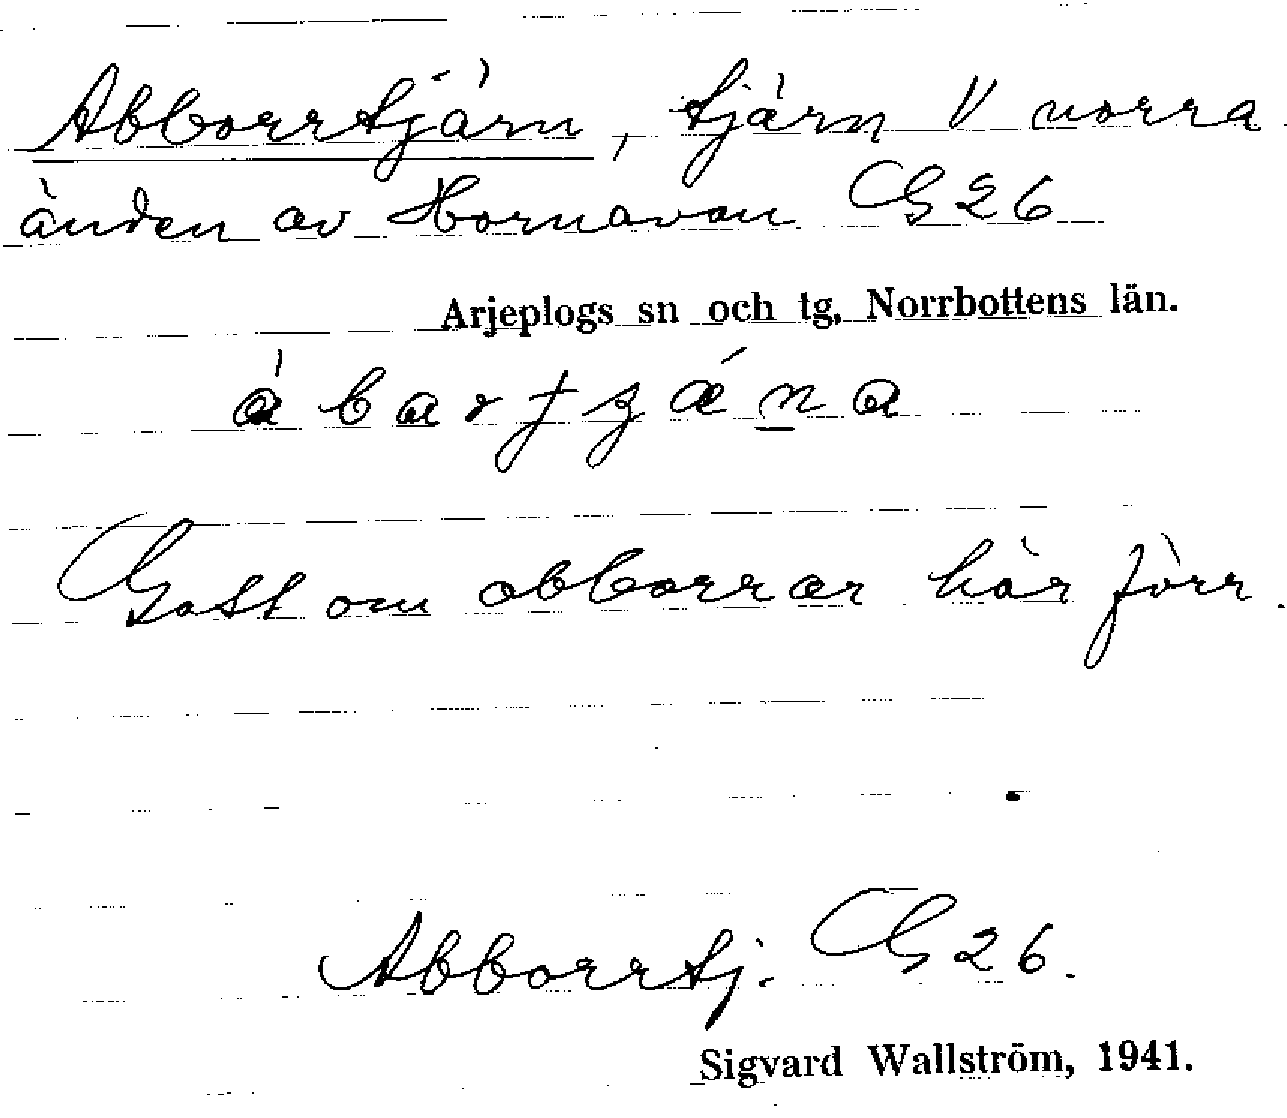 Abborrtjärn, tjärn V norra
änden av Hornavan G 26
Arjeplogs sn och tg, Norrbottens län.
Gott om abborrar här förr.
Abborrtj. G 26.
Sigvard Wallström, 1941.